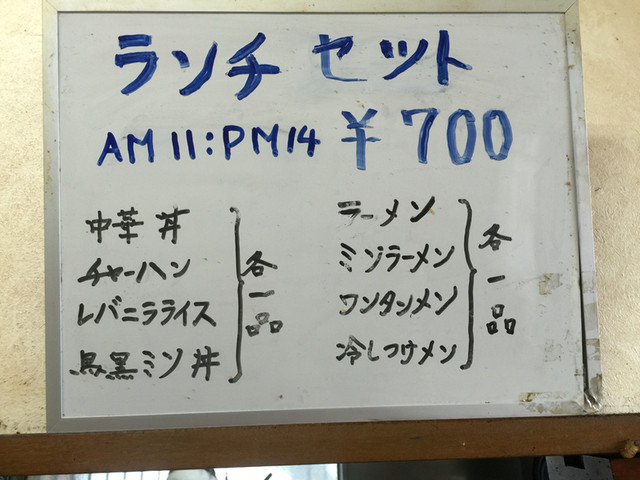 ランチ セット
AM11:PM14 ¥700
中華丼
チャーハン
レバニラライス
鳥黒ミソ丼
各一品
ラーメン
ミソラーメン
ワンタンメン
冷しつけメン
各一品